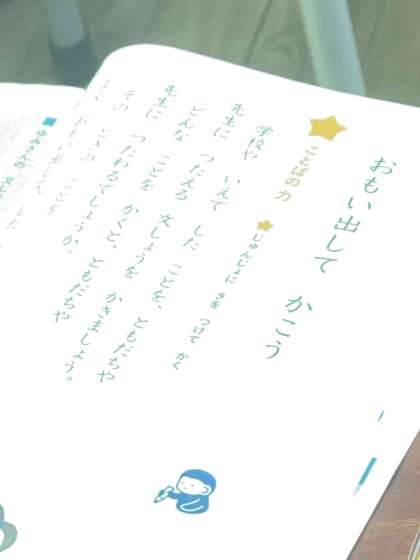 おもい出して かこう
ことばの力
じゅんじょに 気を つけて かく
学校や いえで した ことを、ともだちや
先生に つたえる 文しょうを かきましょう。
どんな ことを かくと、ともだちや
先生に つたわるでしょうか。
その ときの ことを
よく おもい出して、
ゆみさんの 文しょ